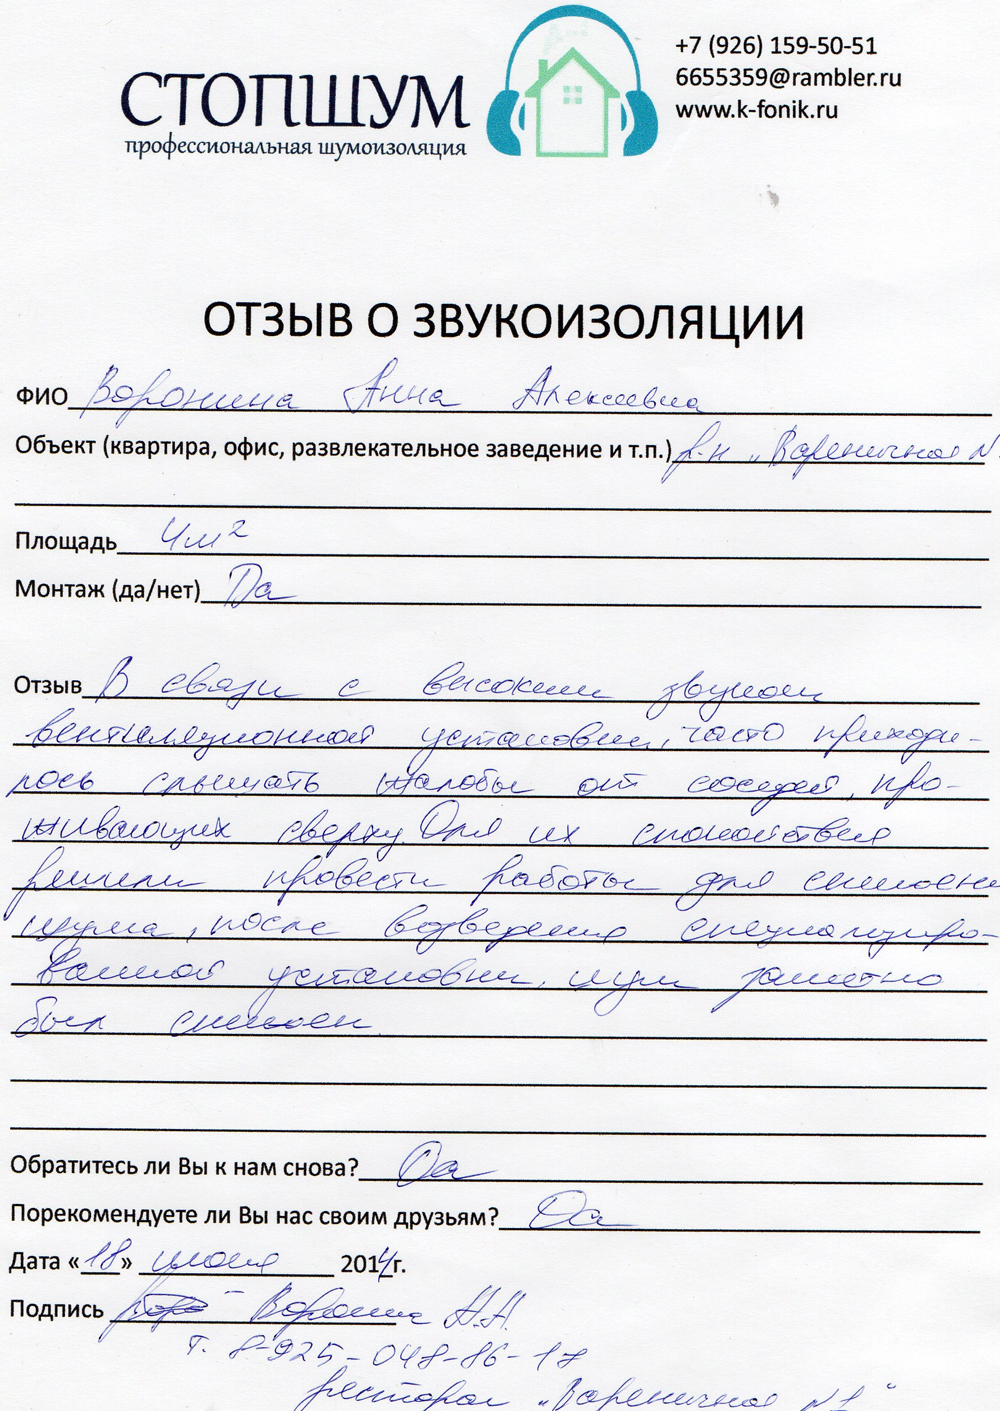 СТОПШУМ
профессиональная шумоизоляция
+7 (926) 159-50-51
6655359@rambler.ru
www.k-fonik.ru
ОТЗЫВ О ЗВУКОИЗОЛЯЦИИ
ФИО Воронина Анна Алексеевна
Объект (квартира, офис, развлекательное заведение и т.п.) р-н "Вареничная N
Площадь 4м²
Монтаж (да/нет) Да
Отзыв В связи с высоким звуком
вентиляционной установки, часто приходи-
лось слышать жалобы от соседей, про-
живающих сверху. Для их спокойствия
решили провести работы для снижен
шума, после возведения специализиро-
ванной установки, шум заметно
был снижен.
Обратитесь ли Вы к нам снова? Да
Порекомендуете ли Вы нас своим друзьям? Да
Дата «18» июня 2014г.
Подпись Воронина А.А.
т. 8-925-048-86-17
ресторан "Вареничная №1"